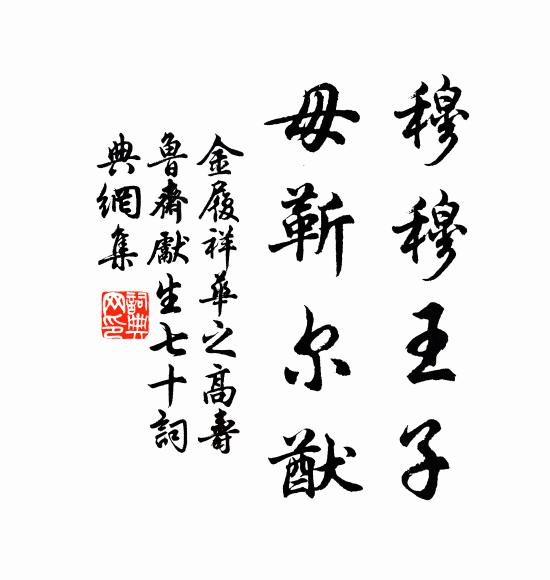 穆穆王子
毋靳尔猷
金履祥華之高壽
魯齋獻生七十詞
典網集
詞典
网印